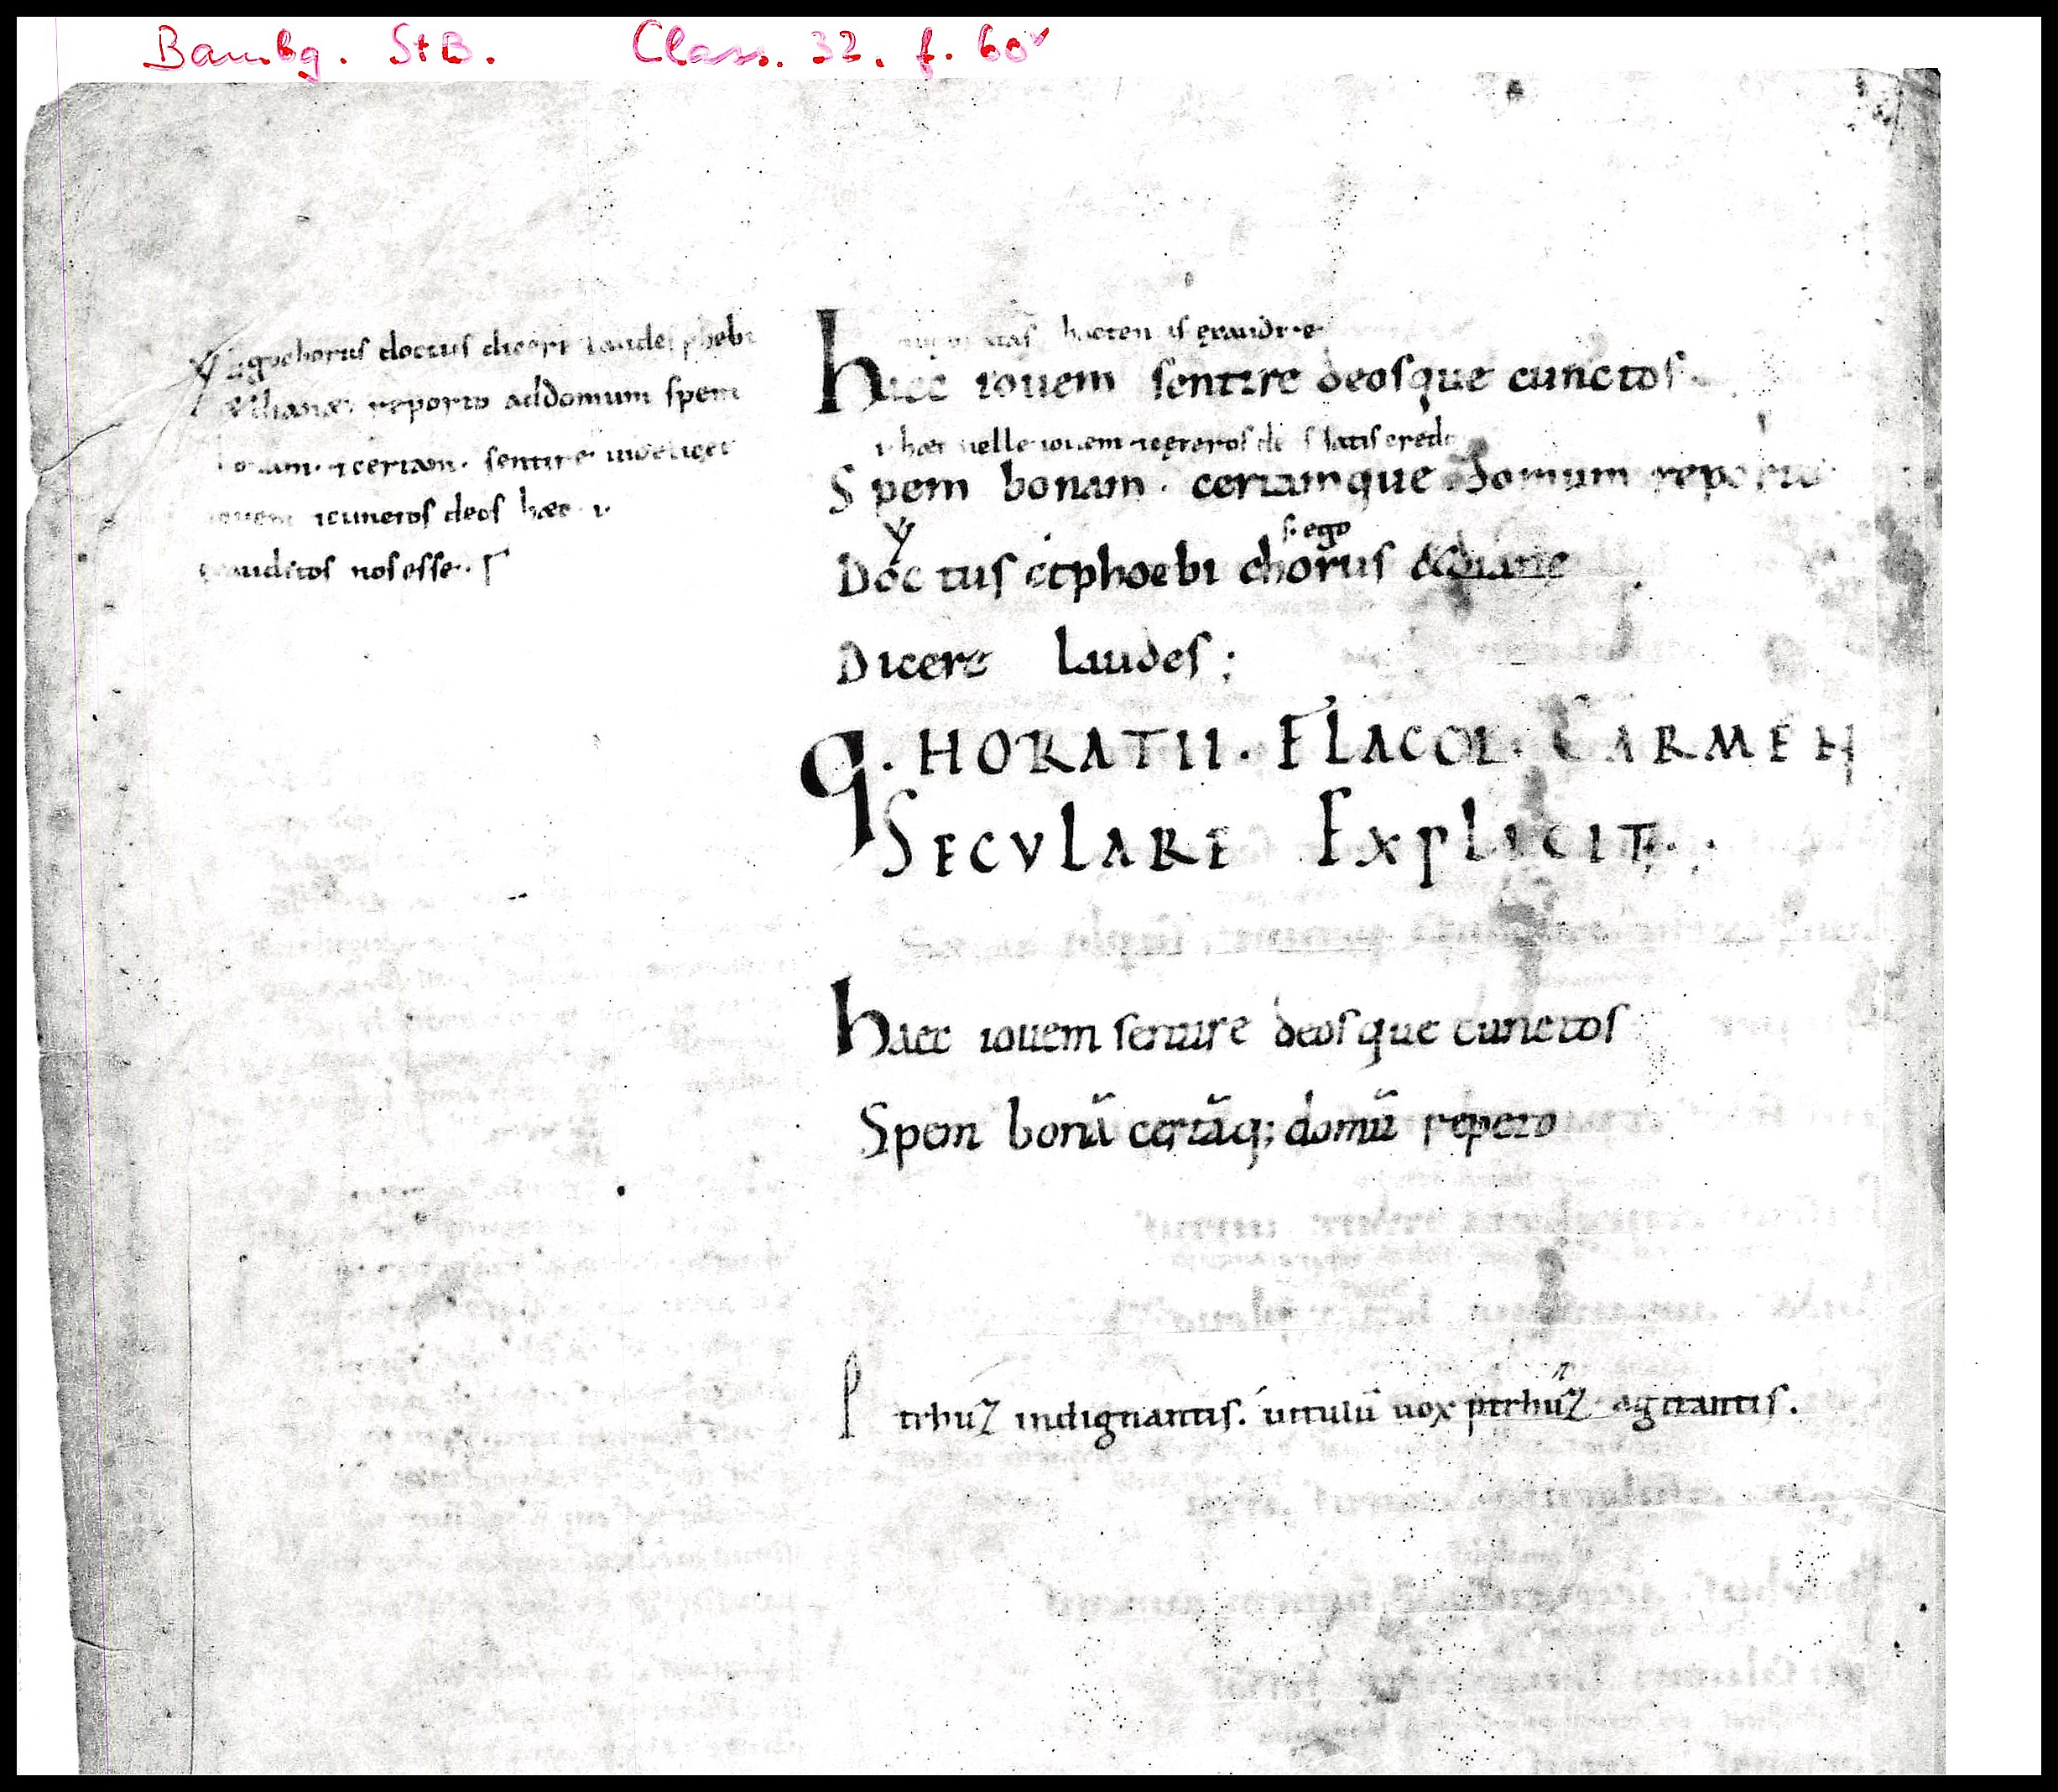 Bambg. StB. Class. 32. f. 60v
doctus dicere laudes phebi
& dianae reporto addomum spem
bonam · & certam · sentire
iouem & cunctos deos haec ·
exauditos nos esse ·
haec iouem sentire deosque cunctos
haec uelle iouem & ceteros satis credo
Spem bonam · certamque domum reporto
s· ego
Doctus etphoebi chorus & diane
Dicere laudes ;
q. HORATII. FLACCI. CARMEN
SECVLARE EXPLICIT.
haec iouem sentire deosque cuncto
Spem bonā certāq; domū repeto
indignantis. uitulū uox agitantis.